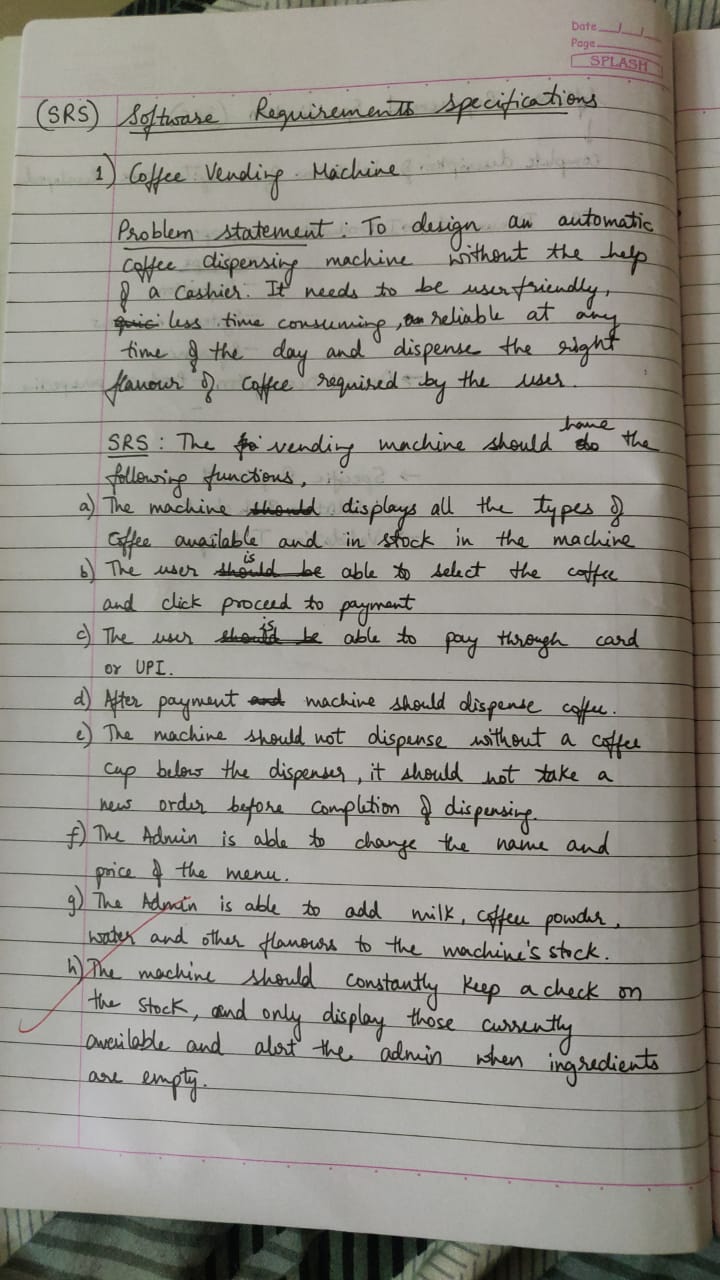 Date / /
Page
SPLASH
(SRS) Software Requirements specifications
1) Coffee Vending Machine
Problem statement : To design an automatic
coffee dispensing machine without the help
of a cashier. It needs to be user friendly,
quic less time consuming, reliable at any
time of the day and dispense the right
flavour of coffee required by the user.
have
SRS : The vending machine should do the
following functions,
a) The machine should displays all the types of
Coffee available and in stock in the machine
is
b) The user should be able to select the coffee
and click proceed to payment
is
c) The user should be able to pay through card
or UPI.
d) After payment and machine should dispense coffee.
e) The machine should not dispense without a coffee
cup below the dispenser, it should not take a
new order before completion of dispensing.
f) The Admin is able to change the name and
price of the menu.
g) The Admin is able to add milk, coffee powder,
water and other flavours to the machine's stock.
h) The machine should constantly keep a check on
the stock, and only display those currently
available and alert the admin when ingredients
are empty.